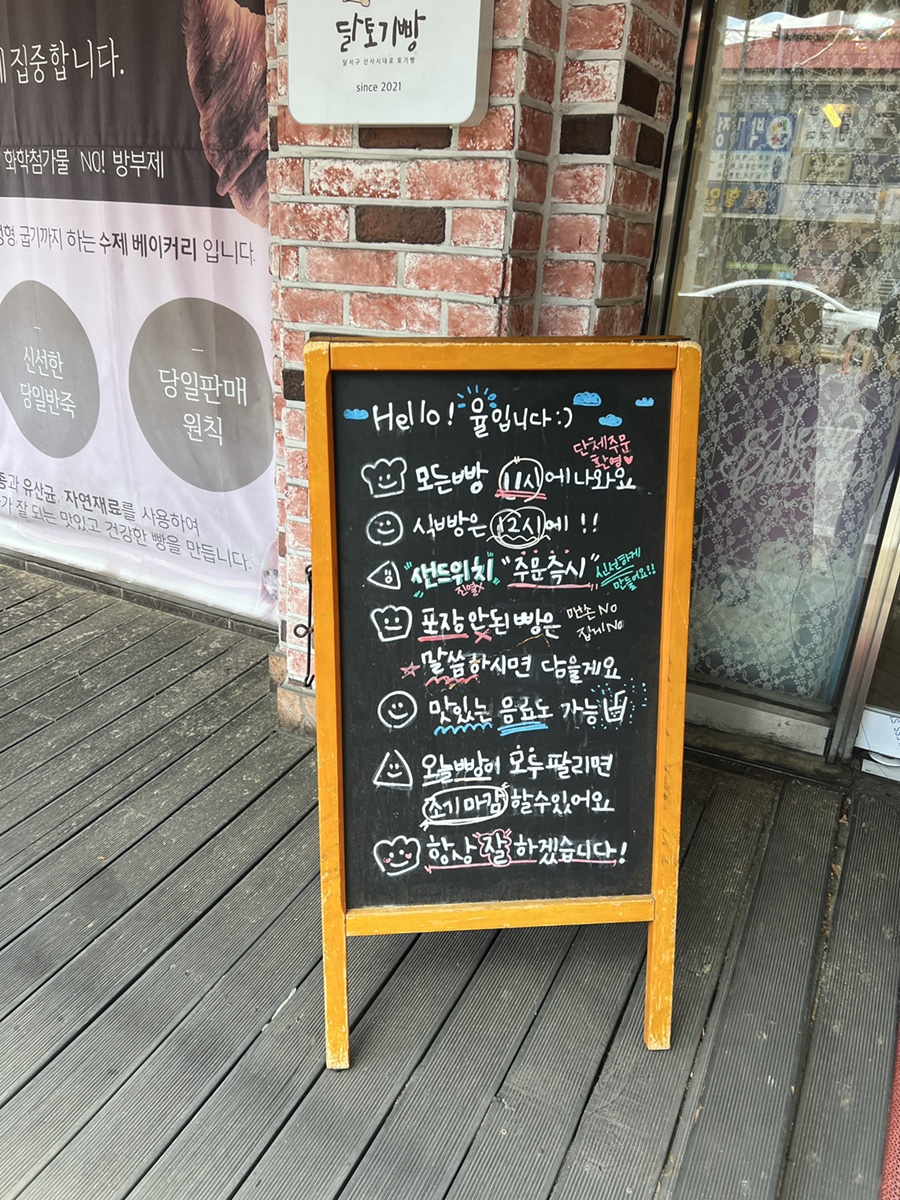 집중합니다.
화학첨가물 NO! 방부제
굽기까지 하는 수제 베이커리 입니다.
신선한
당일반죽
당일판매
원칙
유산균, 자연재료를 사용하여
가 잘 되는 맛있고 건강한 빵을 만듭니다.
달토기빵
달서구 선사시대로 토기빵
since 2021
Hello! 율입니다 :)
단체주문
환영♥
모든빵 11시에 나와요
식빵은 12시에 !!
샌드위치 "주문즉시" 신선하게
만들어요!!
진열X
포장 안된 빵은 맨손 NO
집게 NO
☆ 말씀하시면 담을게요
맛있는 음료도 가능
오늘빵이 모두 팔리면
조기마감 할수있어요
항상 잘 하겠습니다!